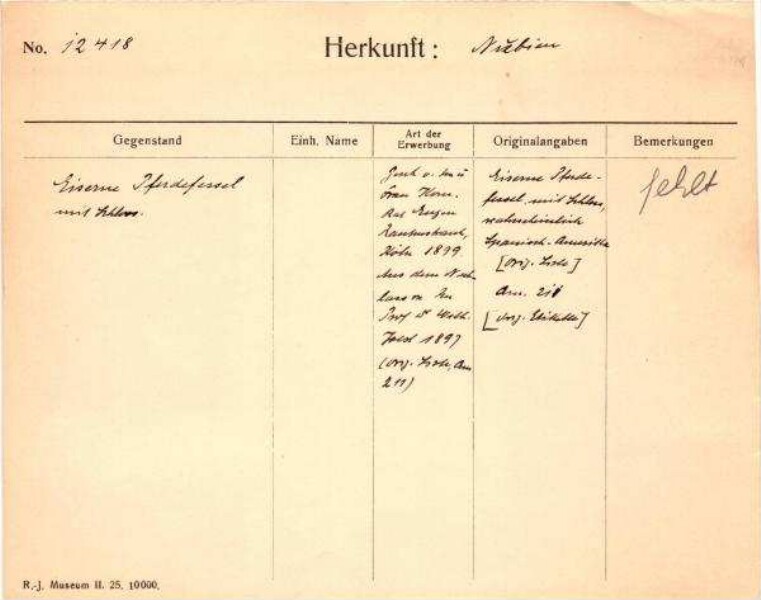 No. 12418 Herkunft: Nubien
Gegenstand Einh. Name Art der Erwerbung Originalangaben Bemerkungen
Eiserne Pferdefessel
mit Schloss.
Gesch. v. Herrn u
Frau Kom.
Rat Eugen
Rautenstrauch,
Köln 1899.
Aus dem Nach-
lass von
Prof Dr Wilh.
Joest 1897
(orig. Liste, Am
211)
Eiserne Pferde-
fessel mit Schloss,
wahrscheinlich
Spanisch-Amerika
[orig. Liste]
Am. 211
[orig. Etikette]
fehlt
R.-J. Museum II. 25. 10000.